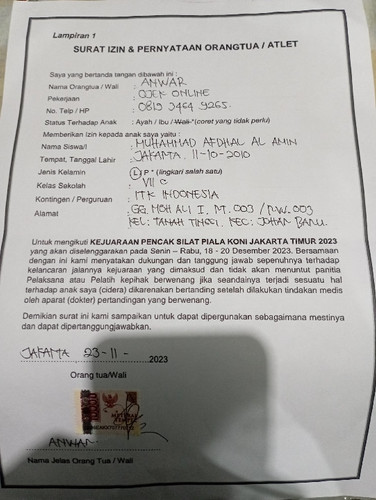 Lampiran 1
SURAT IZIN & PERNYATAAN ORANGTUA / ATLET
Saya yang bertanda tangan dibawah ini :
Nama Orangtua / Wali : ANWAR
Pekerjaan : OJEK ONLINE
No. Telp / HP : 0819 3464 9265.
Status Terhadap Anak : Ayah / Ibu / Wali *(coret yang tidak perlu)
Memberikan Izin kepada anak saya yaitu :
Nama Siswa/i : MUHAMMAD AFDHAL AL AMIN
Tempat, Tanggal Lahir : JAKARTA, 11-10-2010
Jenis Kelamin : L P * (lingkari salah satu)
Kelas Sekolah : VII C
Kontingen / Perguruan : ITK INDONESIA
Alamat : GG. MOH ALI I, RT. 003 / RW. 003
KEL: TANAH TINGGI, KEC: JOHAR BARU.
Untuk mengikuti KEJUARAAN PENCAK SILAT PIALA KONI JAKARTA TIMUR 2023
yang akan diselenggarakan pada Senin – Rabu, 18 - 20 Desember 2023. Bersamaan
dengan ini kami menyatakan dukungan dan tanggung jawab sepenuhnya terhadap
kelancaran jalannya kejuaraan yang dimaksud dan tidak akan menuntut panitia
Pelaksana atau Pelatih kepihak berwenang jika seandainya terjadi sesuatu hal
terhadap anak saya (cidera) dikarenakan bertanding setelah dilakukan tindakan medis
oleh aparat (dokter) pertandingan yang berwenang.
Demikian surat ini kami sampaikan untuk dapat dipergunakan sebagaimana mestinya
dan dapat dipertanggungjawabkan.
JAKARTA, 23-11- 2023
Orang tua/Wali
ANWAR
Nama Jelas Orang Tua / Wali